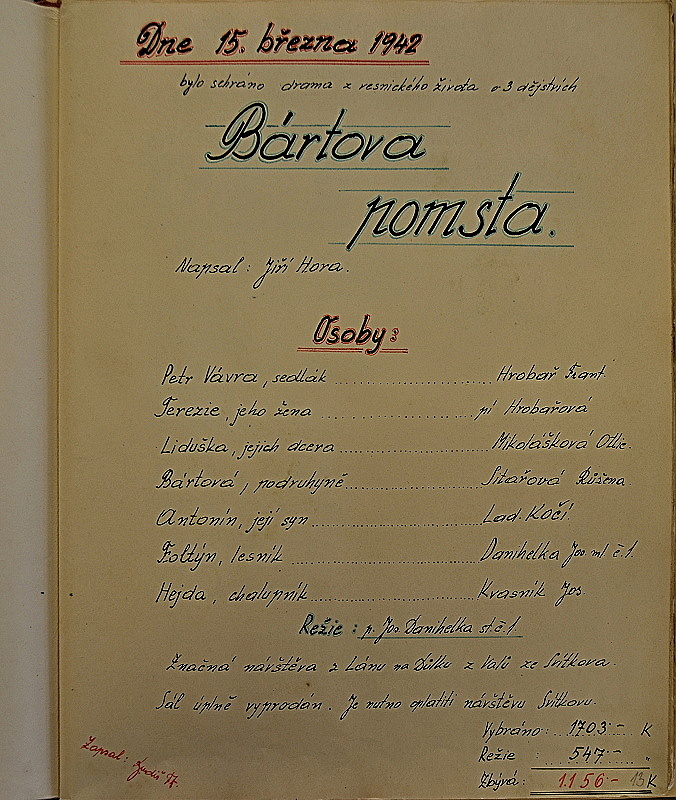 Dne 15. března 1942
bylo sehráno drama z vesnického života o 3 dějstvích
Bártova
pomsta.
Napsal: Jiří Hora.
Osoby:
Petr Vávra, sedlák ........ Hrobař Frant.
Terezie, jeho žena ........ pí Hrobařová
Liduška, jejich dcera ........ Mikolášková Otlie.
Bártová, podruhyně ........ Sitařová Růšena.
Antonín, její syn ........ Lad. Kočí.
Foltýn, lesník ........ Danihelka Jos. ml. č.1.
Hejda, chalupník ........ Kvasnik Jos.
Režie: p. Jos. Danihelka st. č.1.
Značná návštěva z Lánu na Důlku z Valů ze Svítkova.
Sál úplně vyprodán. Je nutno oplatiti návštěvu Svítkovu.
Vybráno: .. 1703.- K
Režie : .. 547.- "
Zbývá: 1156.- 13K
Zapsal: